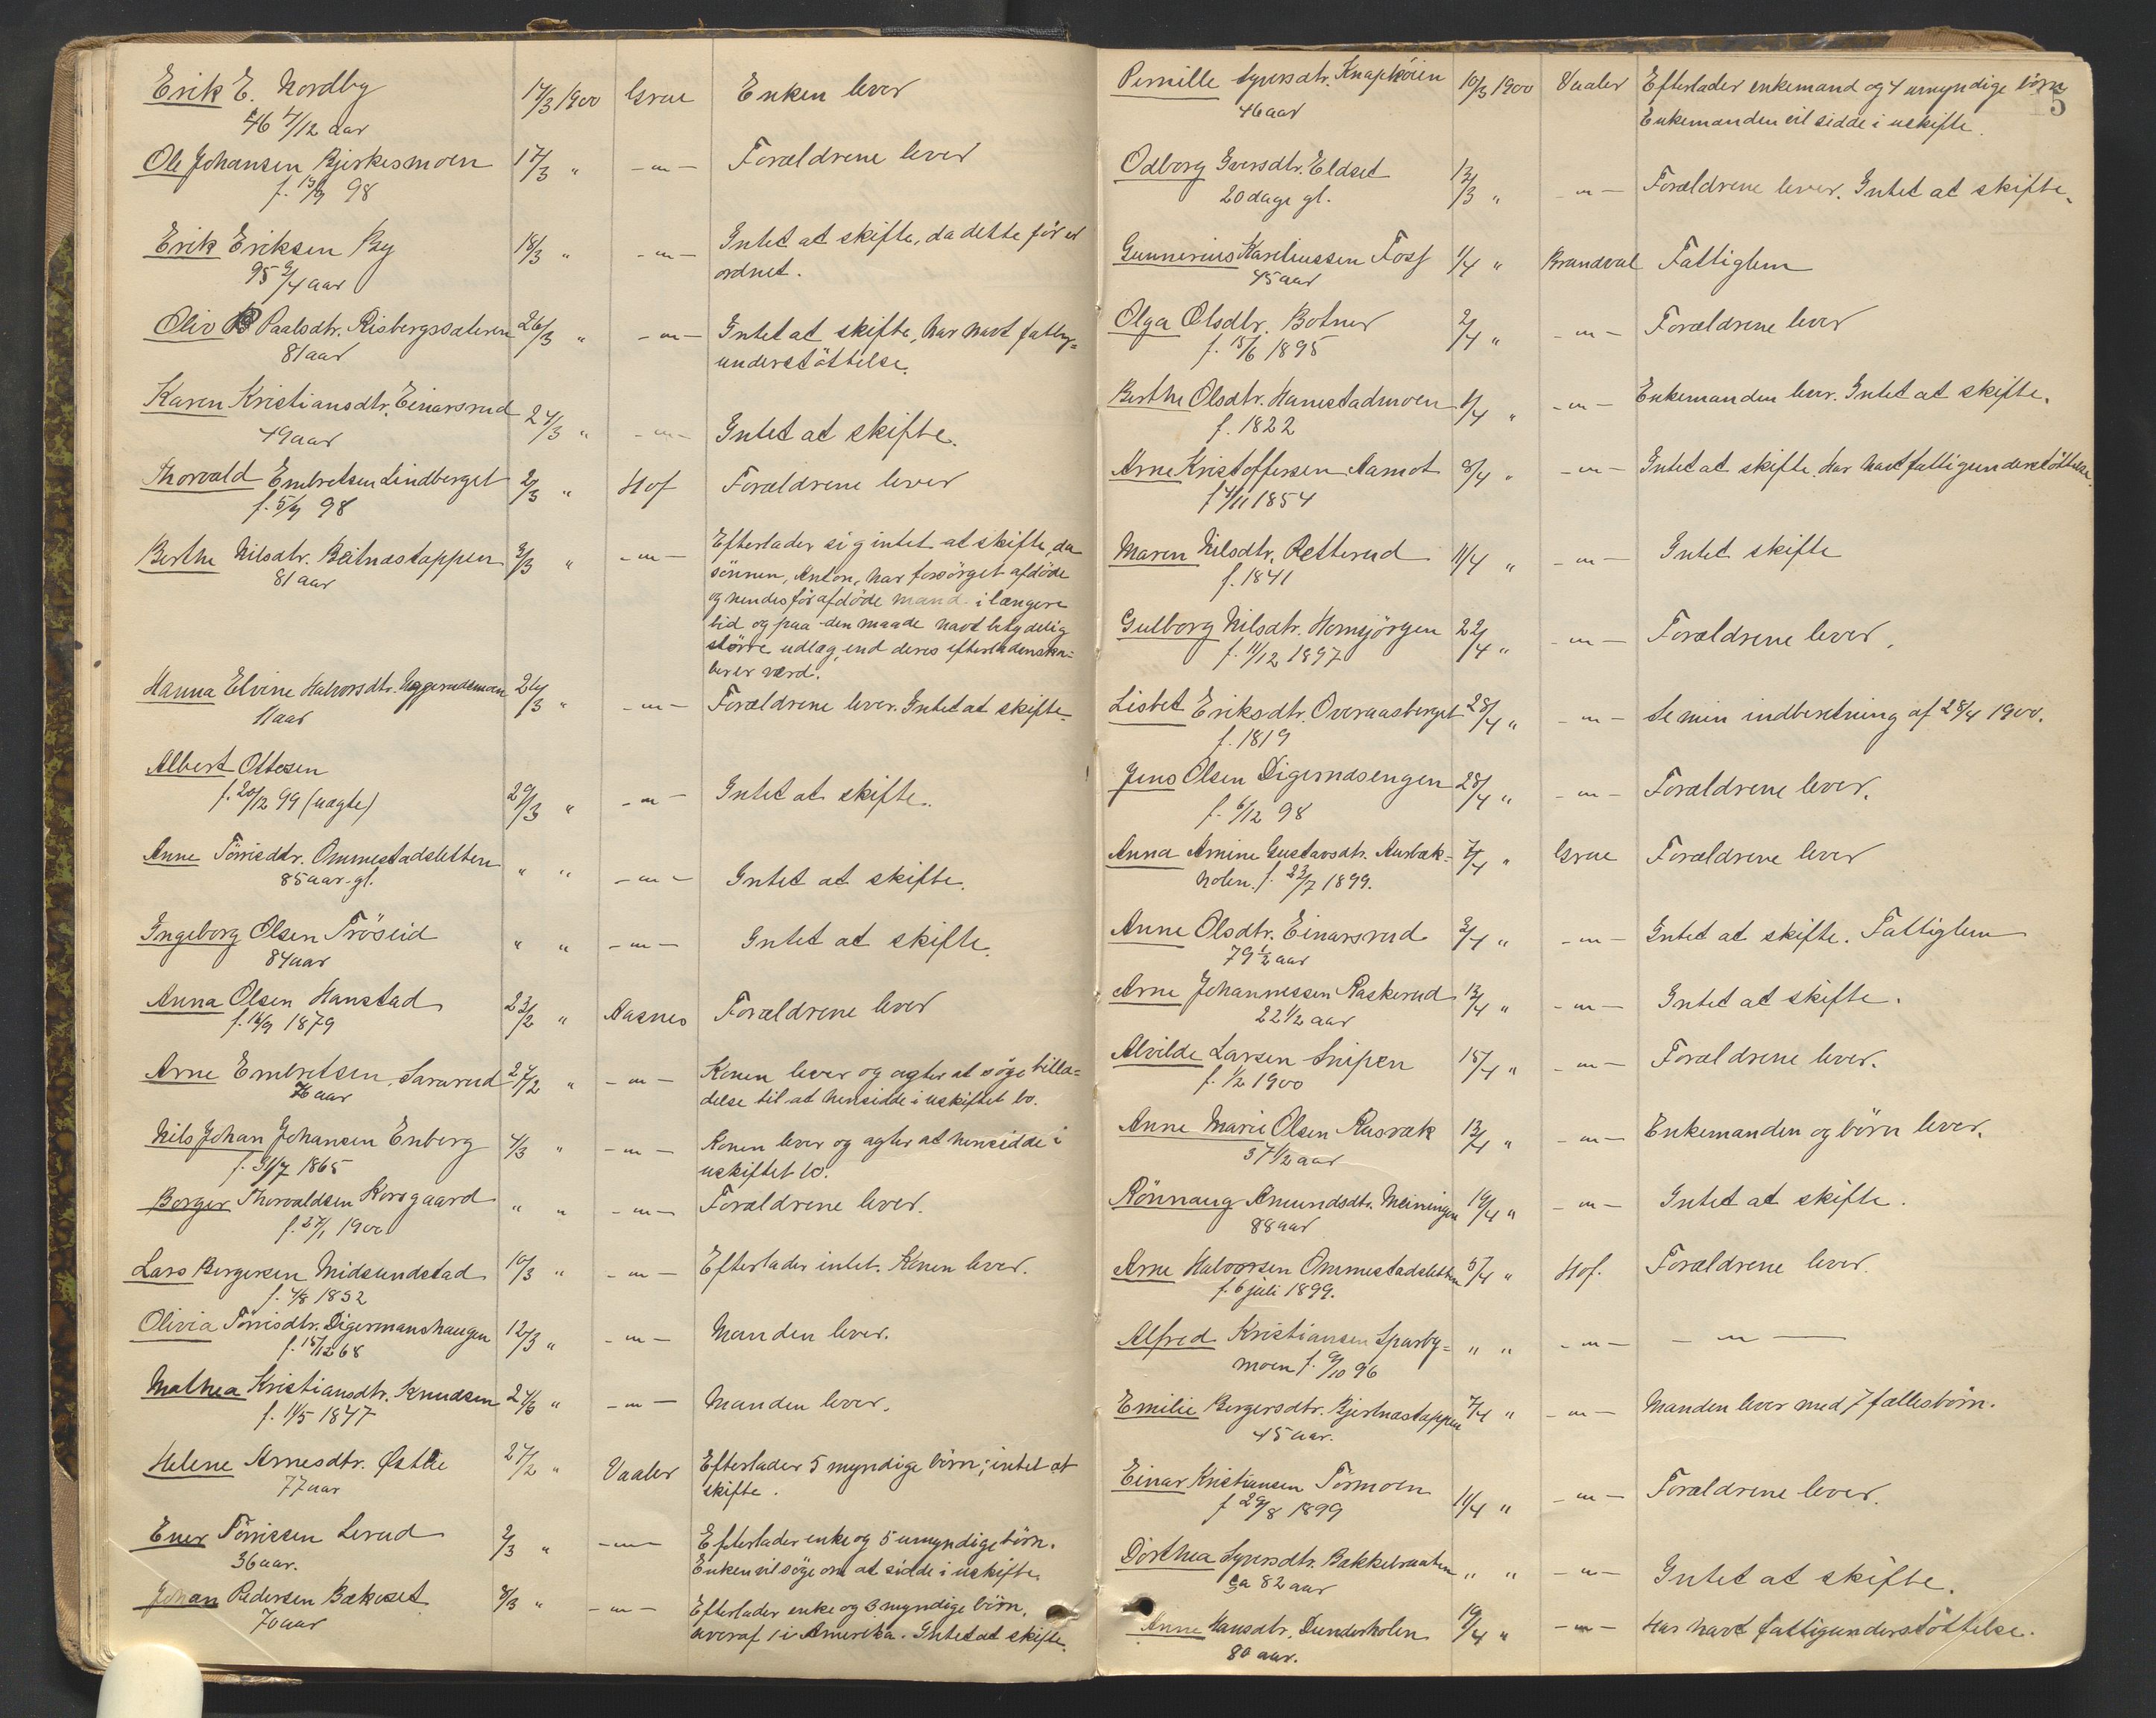 Erik E. Nordby 17/3 1900 Grue Enken lever
46 7/12 aar
Ole Johansen Bjerkesmoen 17/3 " -"- Forældrene lever
f. 13/9 98
Erik Eriksen By 18/3 " -"- Intet at skifte, da dette før er
95 3/4 aar ordnet.
Oliv Paalsdtr. Risbergssæteren 26/3 " -"- Intet at skifte, har havt fattig=
81 aar understøttelse.
Karen Kristiansdtr. Einarsrud 27/3 " -"- Intet at skifte.
49 aar
Thorvald Embretsen Lindberget 2/3 " Hof Forældrene lever
f. 5/9 98
Berthe Nilsdtr. Beitnæstappen 3/3 " -"- Efterlader sig intet at skifte, da
81 aar sønnen, Anton, har forsørget afdøde
og hendes før afdøde mand i længere
tid og paa den maade havt betydelig
større udlæg, end deres efterladenska-
ber er værd.
Hanna Elvine Halvorsdtr. Uggerudsmoen 26/3 " -"- Forældrene lever. Intet at skifte.
11 aar
Albert Ottesen
f. 20/12 99 (uægte) 29/3 " -"- Intet at skifte.
Anne Tørrisdtr. Ommestadsletten " " -"- Intet at skifte.
85 aar gl.
Ingeborg Olsen Trøseid " " -"- Intet at skifte.
84 aar
Anna Olsen Hanstad 23/2 " Aasnes Forældrene lever
f. 16/9 1879
Arne Embretsen Sararud 27/2 " -"- Konen lever og agter at søge tilla=
76 aar delse til at hensidde i uskiftet bo.
Nils Johan Johansen Enberg 4/3 " -"- Konen lever og agter at hensidde i
f. 31/7 1865 uskiftet bo.
Borger Thorvaldsen Korsgaard " " -"- Forældrene lever.
f. 27/1 1900
Lars Bergersen Midsundstad 10/3 " -"- Efterlader intet. Konen lever.
f. 4/8 1852
Olivia Tørrisdtr. Digermanshaugen 12/3 " -"- Manden lever.
f. 15/12 68
Mathea Kristiansdtr. Knudsen 24/6 " -"- Manden lever.
f. 11/5 1847
Helene Arnesdtr. Østlie 27/2 " Vaaler Efterlader 5 myndige børn; intet at
77 aar skifte.
Ener Tørrissen Lerud 2/3 " -"- Efterlader enke og 5 umyndige børn.
36 aar. Enken vil søge om at sidde i uskifte.
Johan Pedersen Bækset 8/3 " -"- Efterlader enke og 3 myndige børn,
70 aar hvoraf 1 i Amerika. Intet at skifte.
5
Pernille Syversdtr. Knaphøien 10/3 1900 Vaaler Efterlader enkemand og 4 umyndige børn
46 aar Enkemanden vil sidde i uskifte.
Odborg Iversdtr. Eldset 13/3 " -"- Forældrene lever. Intet at skifte.
20 dage gl.
Gunnerius Kareliussen Foss 1/4 " Brandval Fattiglem
45 aar
Olga Olsdtr. Botner 2/4 " -"- Forældrene lever
f. 15/6 1895
Berthe Olsdtr. Hanestadmoen 6/4 " -"- Enkemanden lever. Intet at skifte.
f. 1822
Arne Kristoffersen Aamot 8/4 " -"- Intet at skifte. Har havt fattigunderstøttelse.
f 4/11 1854
Maren Nilsdtr. Retterud 11/4 " -"- Intet skifte
f. 1841
Gulborg Nilsdtr. Hornsjørgen 22/4 " -"- Forældrene lever.
f. 11/12 1897
Lisbet Eriksdtr. Overaasberget 28/4 " -"- Se min indberetning af 28/4 1900.
f. 1819
Jens Olsen Digernæsengen 28/4 " -"- Forældrene lever.
f. 6/12 98
Anna Amine Gustavsdtr. Aurbæk= 7/4 " Grue Forældrene lever
holen. f. 23/7 1899.
Anne Olsdtr. Einarsrud 3/4 " -"- Intet at skifte. Fattiglem
79 1/2 aar
Arne Johannessen Raskerud 13/4 " -"- Intet at skifte.
22 1/2 aar
Alvilde Larsen Snipen 15/4 " -"- Forældrene lever.
f. 1/2 1900
Anne Marie Olsen Rasvæk 13/4 " -"- Enkemanden og børn lever.
37 1/2 aar
Rønnaug Amundsdtr. Meiningen 19/4 " -"- Intet at skifte.
88 aar
Arne Halvorsen Ommestadsletten 5/4 " Hof. Forældrene lever.
f. 6 juli 1899.
Alfred Kristiansen Sparby= " " -"- -"-
moen f. 9/10 96
Emilie Bergersdtr. Bjertnæstappen 7/4 " -"- Manden lever med 7 fællesbørn.
45 aar.
Einar Kristiansen Tørmoen 11/4 " -"- Forældrene lever.
f 29/8 1899
Dorthea Syversdtr. Bakkebraaten " " -"- Intet at skifte.
ca 82 aar
Anne Hansdtr. Dunderholen 19/4 " -"- Har havt fattigunderstøttelse.
80 aar.